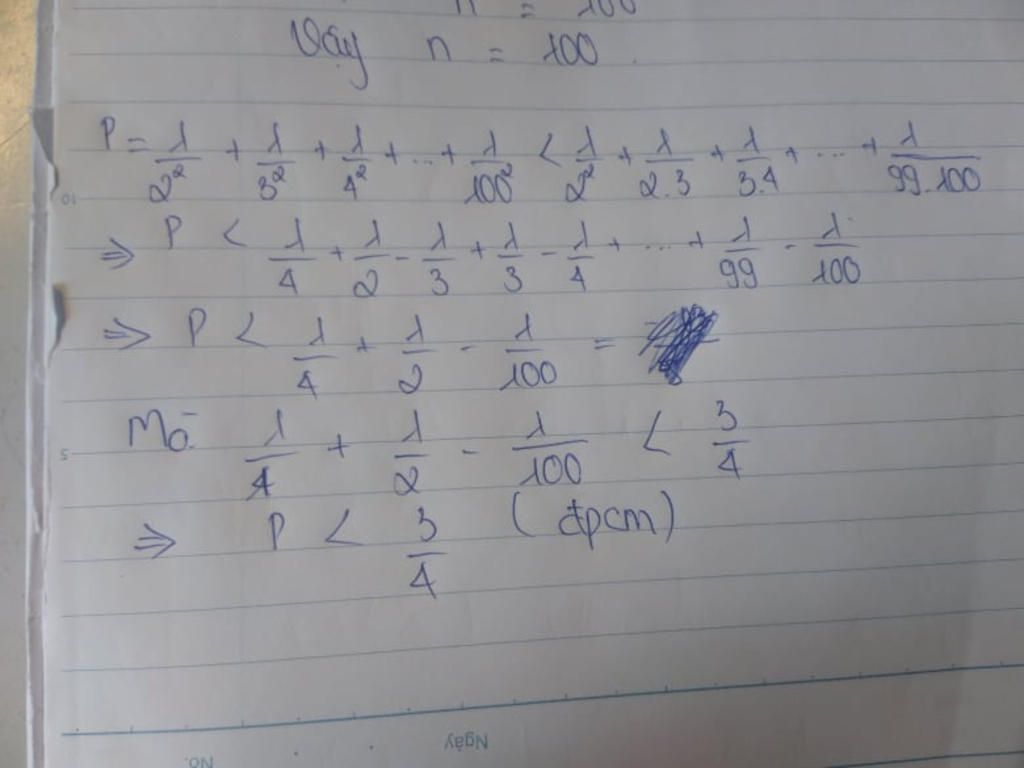 n = 100
Vậy n = 100.
P = 1/2² + 1/3² + 1/4² + ... + 1/100² < 1/2² + 1/2.3 + 1/3.4 + ... + 1/99.100
⇒ P < 1/4 + 1/2 - 1/3 + 1/3 - 1/4 + ... + 1/99 - 1/100
⇒ P < 1/4 + 1/2 - 1/100 =
Mà 1/4 + 1/2 - 1/100 < 3/4
⇒ P < 3/4 (đpcm)
10
5
Ngày
No.